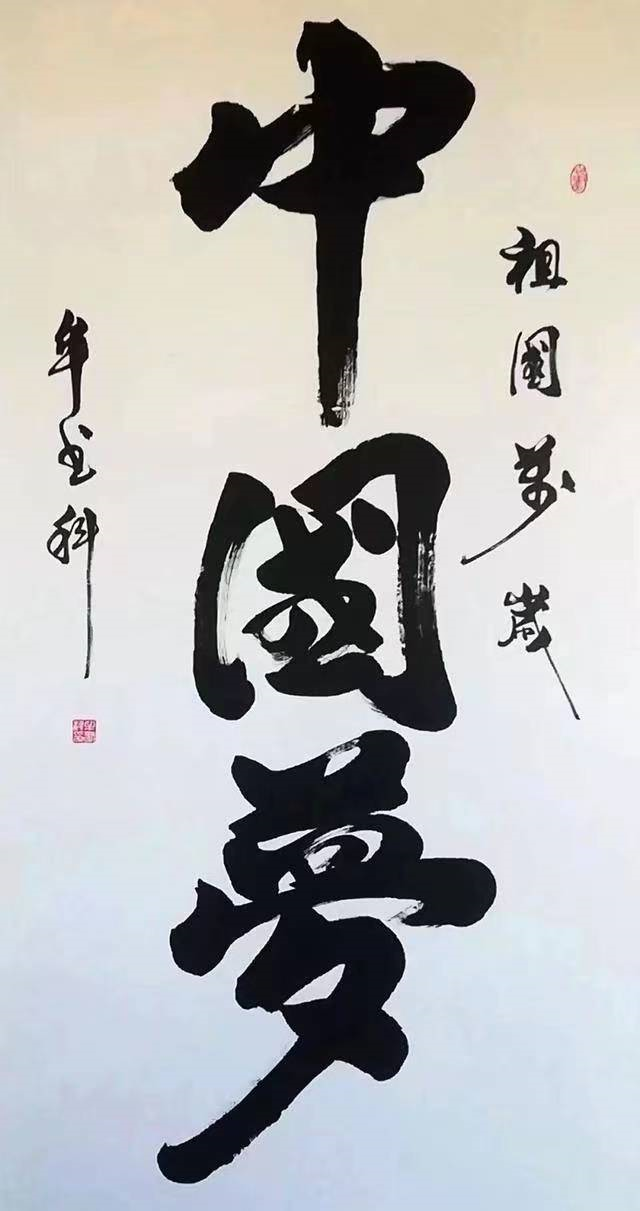 祖國萬歲
中國夢
牟玉科